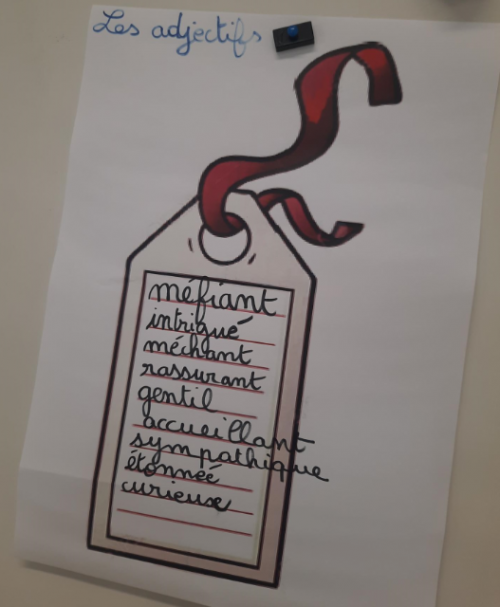 Les adjectifs
méfiant
intrigué
méchant
rassurant
gentil
accueillant
sympathique
étonnée
curieuse